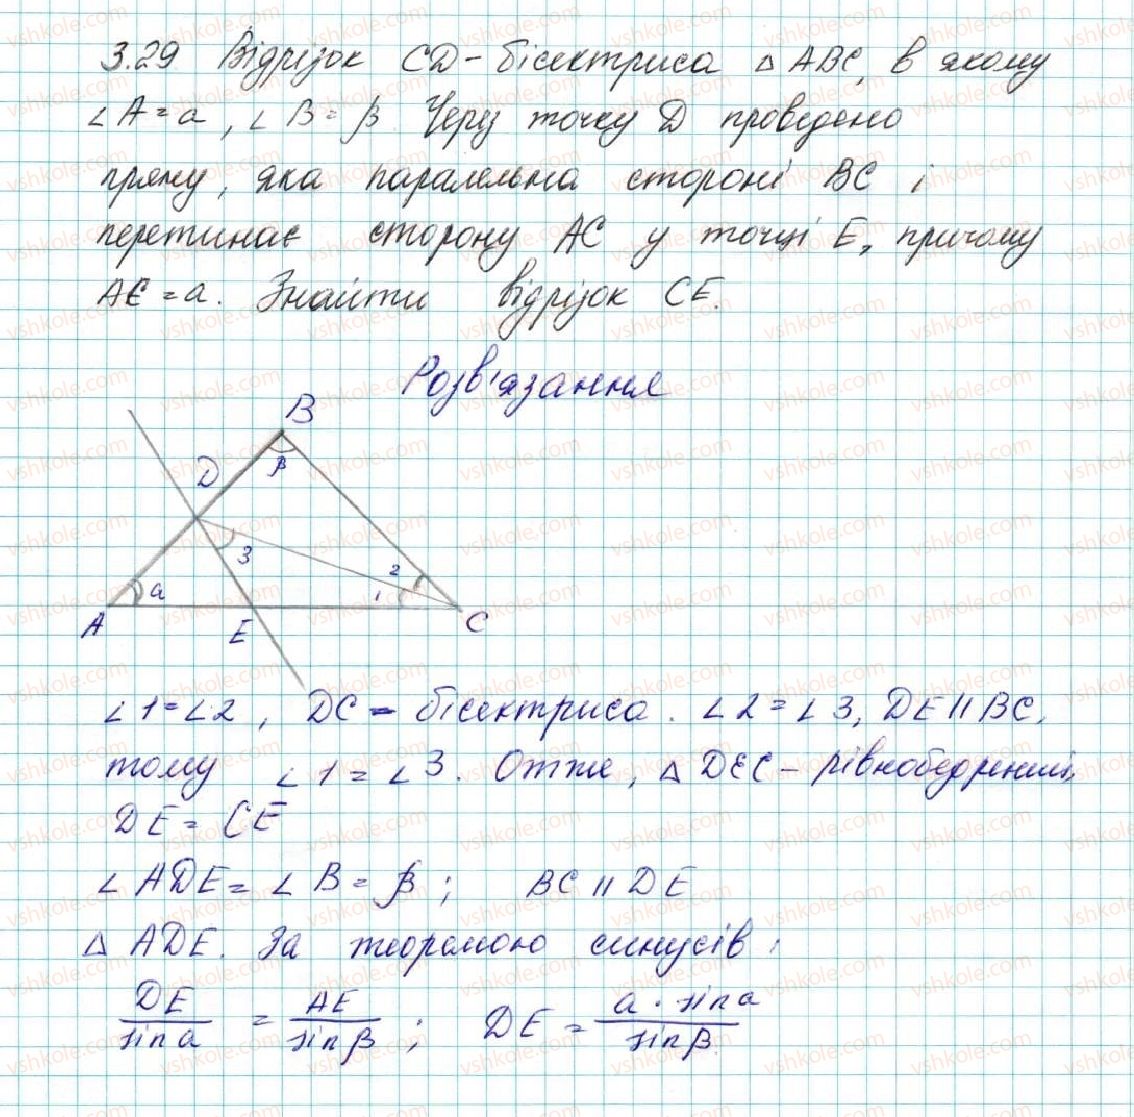 3.29 Відрізок CD - бісектриса △ ABC, в якому
∠A = a, ∠B = β Через точку D проведено
пряму, яка паралельна стороні BC і
перетинає сторону AC у точці E, причому
AE = a. Знайти відрізок CE.
Розв'язання
B
D
β
3
2
a
1
A
E
C
∠1 = ∠2, DC - бісектриса. ∠2 = ∠3, DE || BC,
тому ∠1 = ∠3. Отже, △ DEC - рівнобедрений,
DE = CE
∠ADE = ∠B = β; BC || DE
△ ADE. За теоремою синусів:
DE/sin a = AE/sin β; DE = a · sin a/sin β